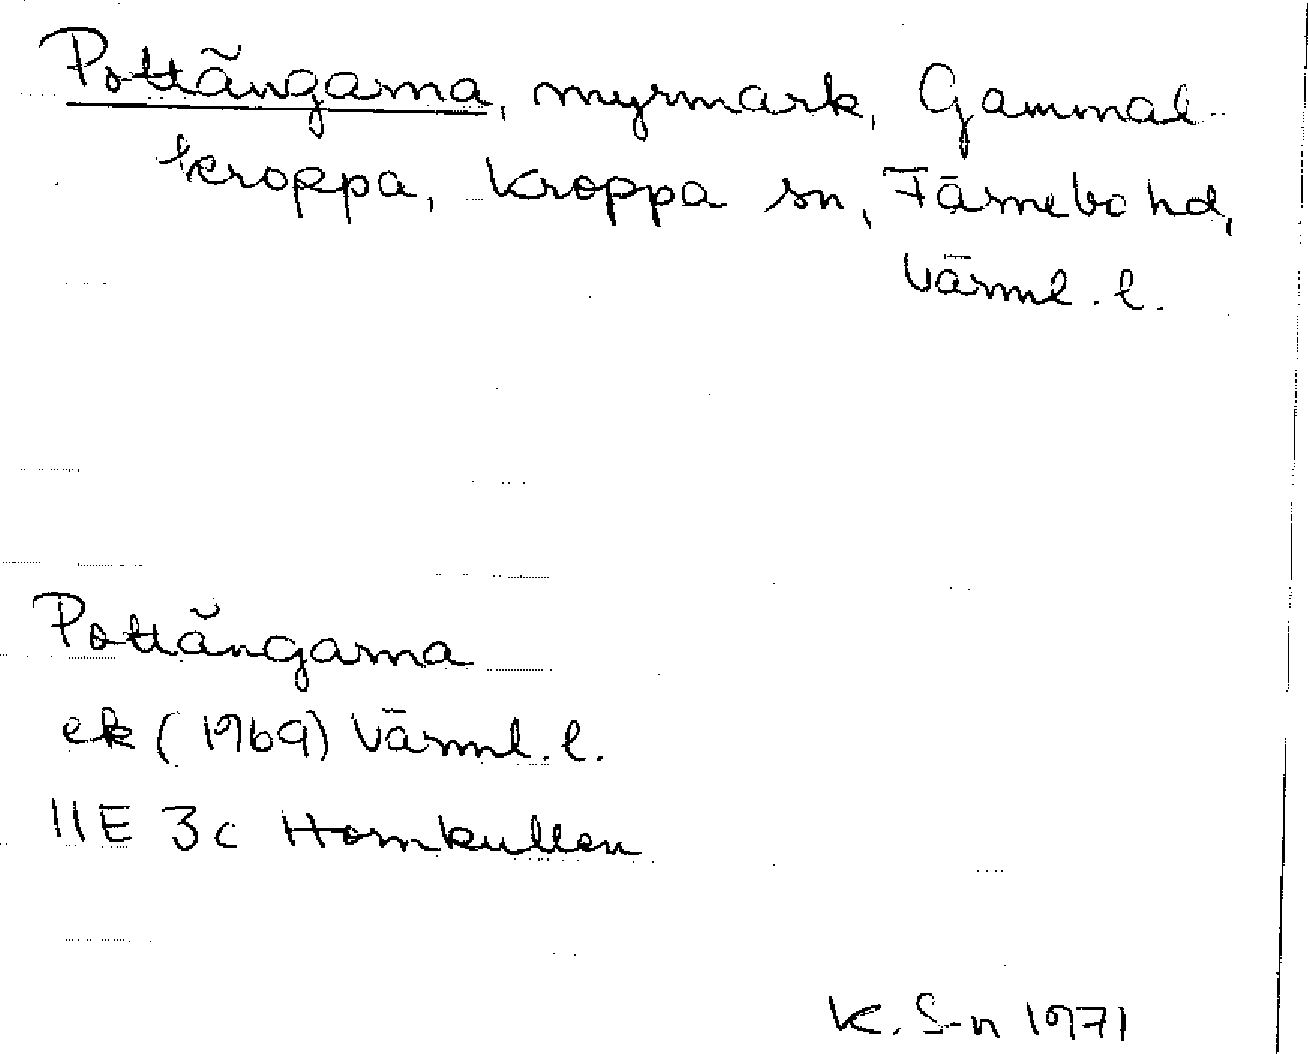 Pottängarna, myrmark, Gammal-
kroppa, Kroppa sn, Färnebo hd,
Värml. l.
Pottängarna
ek (1969) Värml. l.
11E 3c Hornkullen
K. S-n 1971